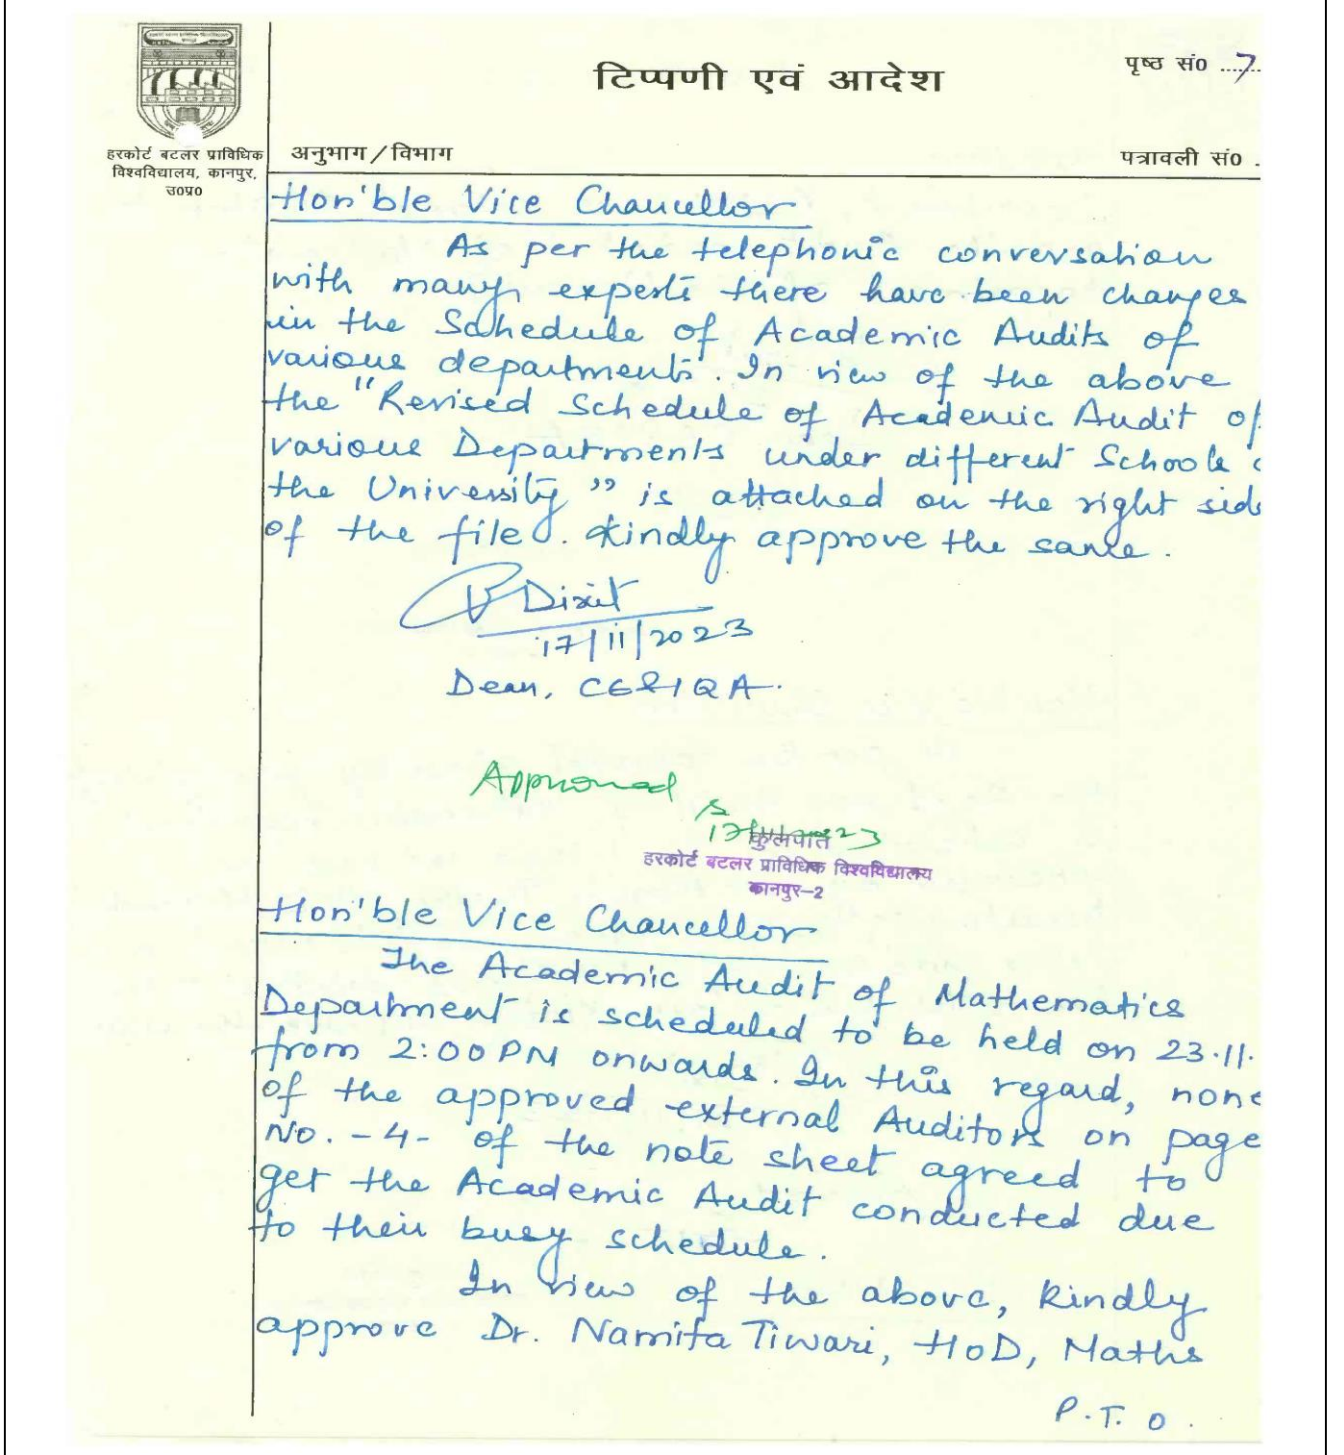 टिप्पणी एवं आदेश
पृष्ठ सं० ....7..
हरकोर्ट बटलर प्राविधिक
विश्वविद्यालय, कानपुर,
उ०प्र०
अनुभाग / विभाग
पत्रावली सं० .
Hon'ble Vice Chancellor
As per the telephonic conversation
with many experts there have been changes
in the Schedule of Academic Audits of
various departments. In view of the above
the "Revised Schedule of Academic Audit of
various Departments under different Schools
the University" is attached on the right side
of the file. Kindly approve the same.
Dixit
17/11/2023
Dean, CE&IQA.
Approved
कुलपति
हरकोर्ट बटलर प्राविधिक विश्वविद्यालय
कानपुर-2
Hon'ble Vice Chancellor
The Academic Audit of Mathematics
Department is scheduled to be held on 23.11.
from 2:00 PM onwards. In this regard, none
of the approved external Auditors on page
No. -4- of the note sheet agreed to
get the Academic Audit conducted due
to their busy schedule.
In view of the above, kindly
approve Dr. Namita Tiwari, HoD, Maths
P.T.O.